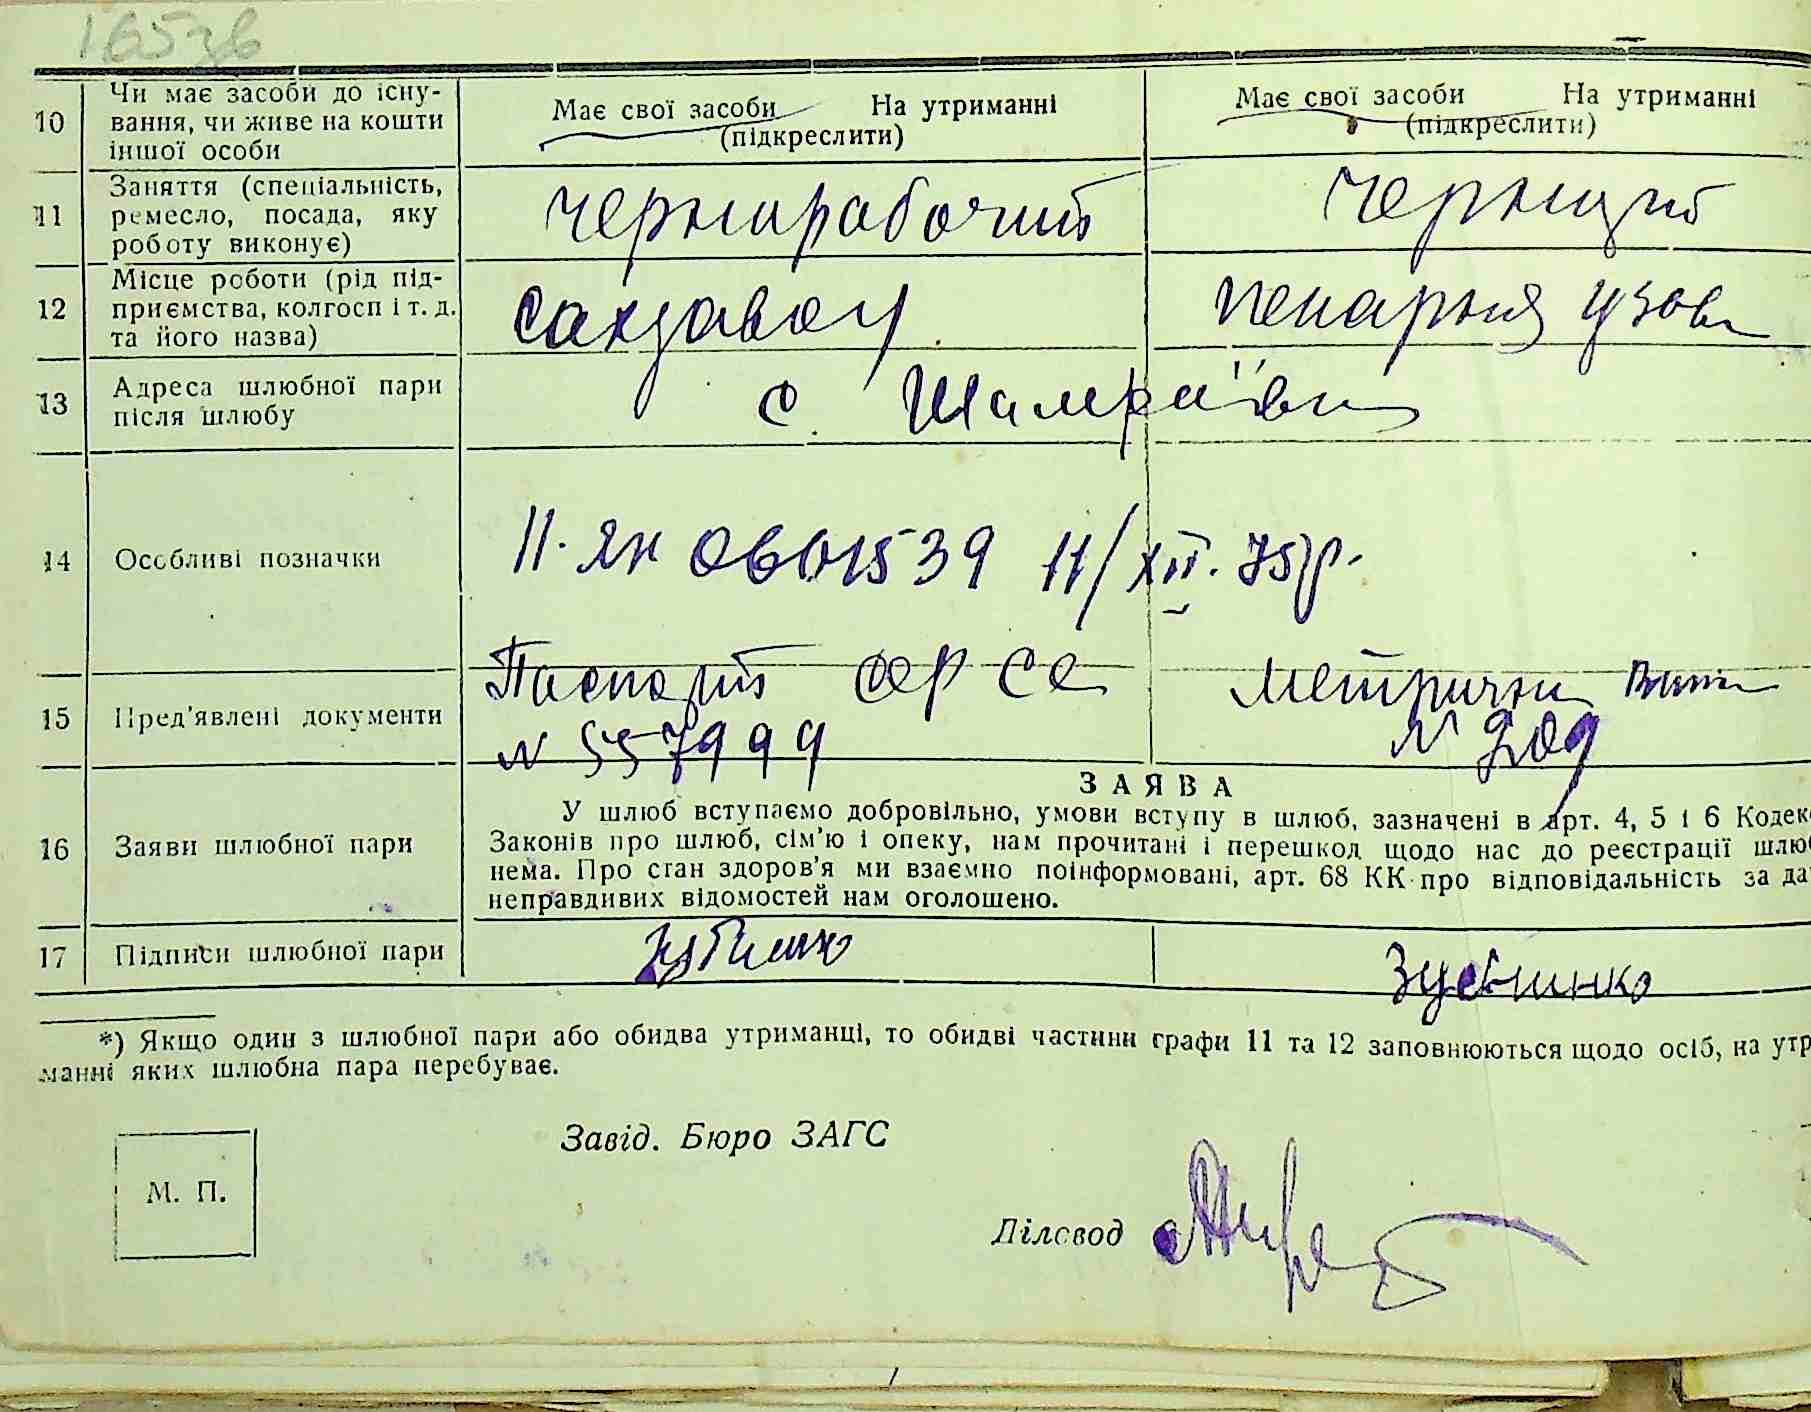 165зв
10 Чи має засоби до існу-
вання, чи живе на кошти
іншої особи
Має свої засоби На утриманні
(підкреслити)
Має свої засоби На утриманні
(підкреслити)
11 Заняття (спеціальність,
ремесло, посада, яку
роботу виконує)
чернорабочий
12 Місце роботи (рід під-
приємства, колгосп і т. д.
та його назва)
сахзавод
пекарня
13 Адреса шлюбної пари
після шлюбу
с. Шамраївка
14 Особливі позначки
II-ЯН 0601539 11/XII. 75р.
15 Пред'явлені документи
Паспорт
N 557999
Метричні
N 209
16 Заяви шлюбної пари
ЗАЯВА
У шлюб вступаємо добровільно, умови вступу в шлюб, зазначені в арт. 4, 5 і 6 Кодек
Законів про шлюб, сім'ю і опеку, нам прочитані і перешкод щодо нас до реєстрації шлю
нема. Про стан здоров'я ми взаємно поінформовані, арт. 68 КК про відповідальність за да
неправдивих відомостей нам оголошено.
17 Підписи шлюбної пари
*) Якщо один з шлюбної пари або обидва утриманці, то обидві частини графи 11 та 12 заповнюються щодо осіб, на утр
манні яких шлюбна пара перебуває.
Завід. Бюро ЗАГС
М. П.
Діловод